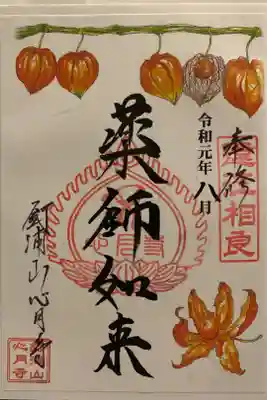 奉修
相良
令和元年 八月
薬師如来
釘浦山 心月寺
山
心月寺